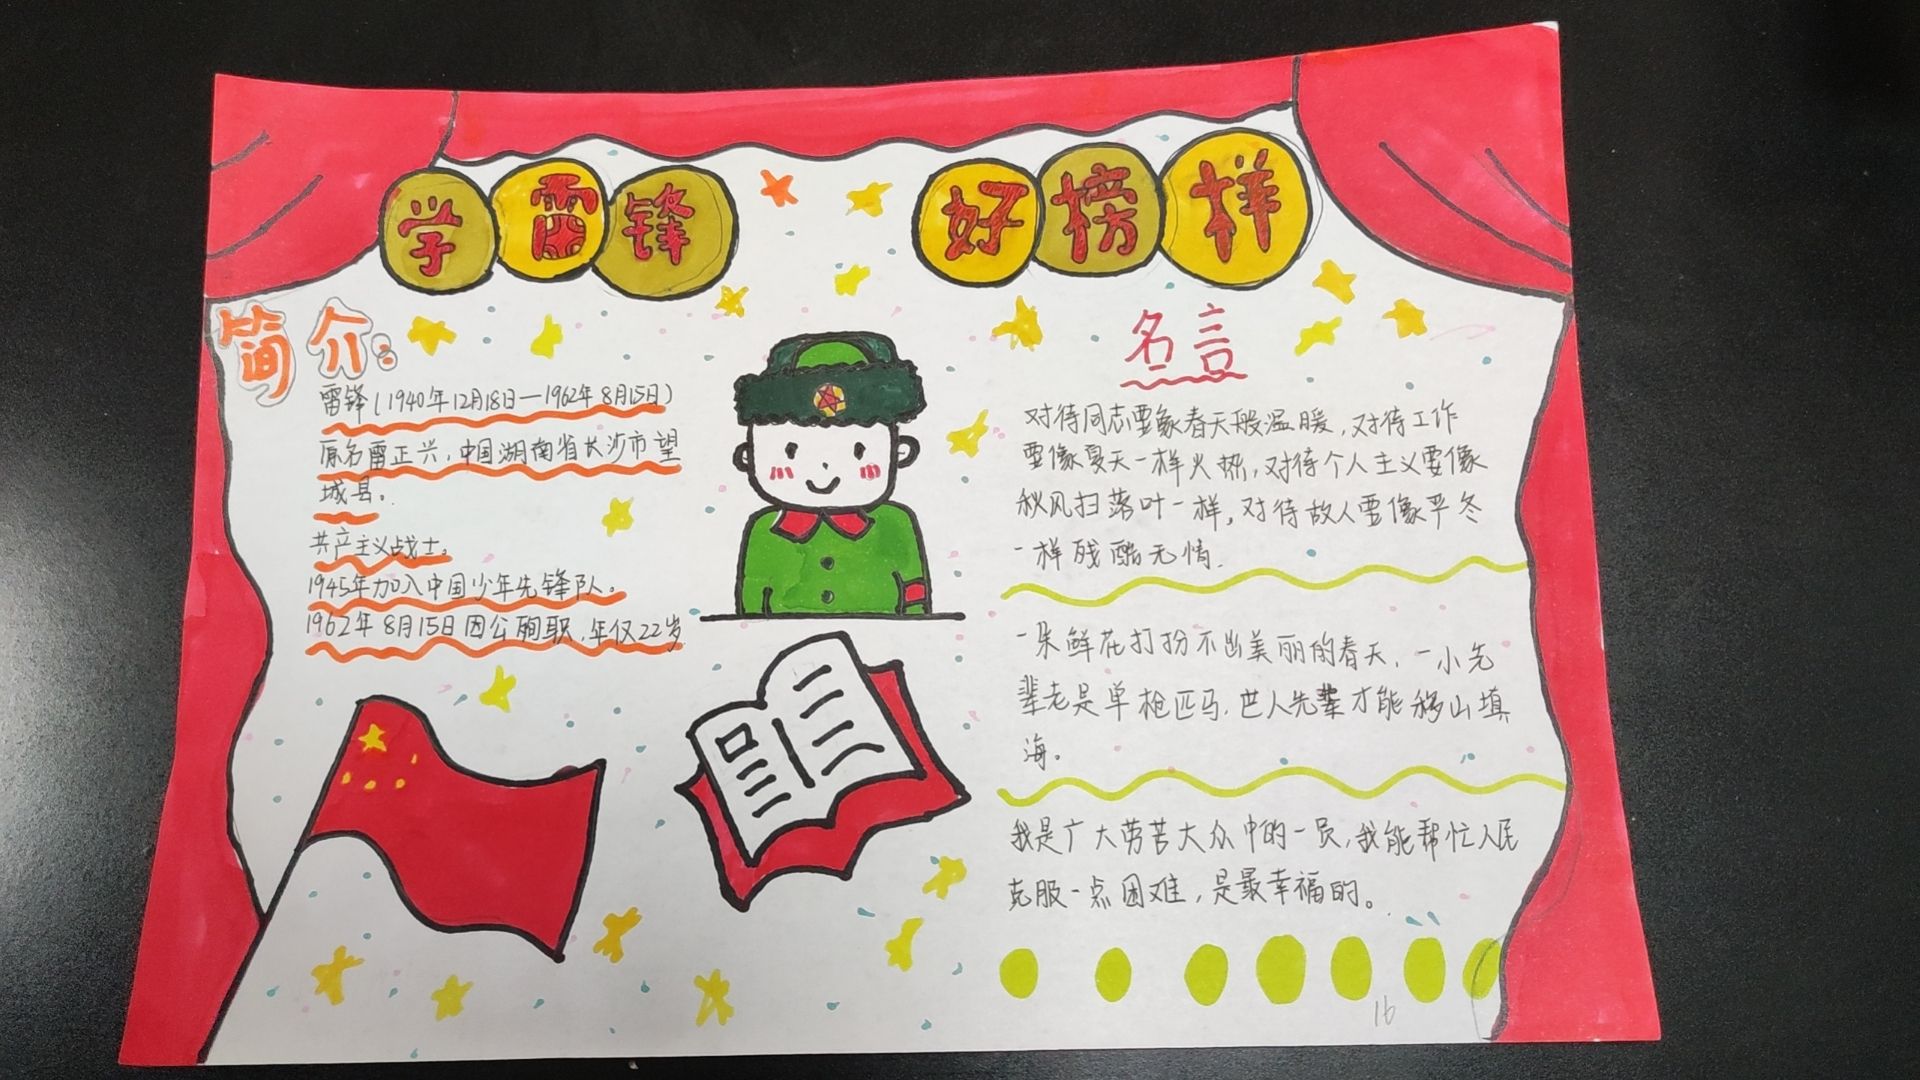 学雷锋 好榜样
简介:
雷锋(1940年12月18日—1962年8月15日)
原名雷正兴,中国湖南省长沙市望
城县。
共产主义战士。
1945年加入中国少年先锋队。
1962年8月15日因公殉职,年仅22岁
名言
对待同志要象春天般温暖,对待工作
要像夏天一样火热,对待个人主义要像
秋风扫落叶一样,对待故人要像严冬
一样残酷无情.
一朵鲜花打扮不出美丽的春天,一小先
辈老是单枪匹马.世人先辈才能移山填
海。
我是广大劳苦大众中的一员,我能帮忙人民
克服一点困难,是最幸福的。
16